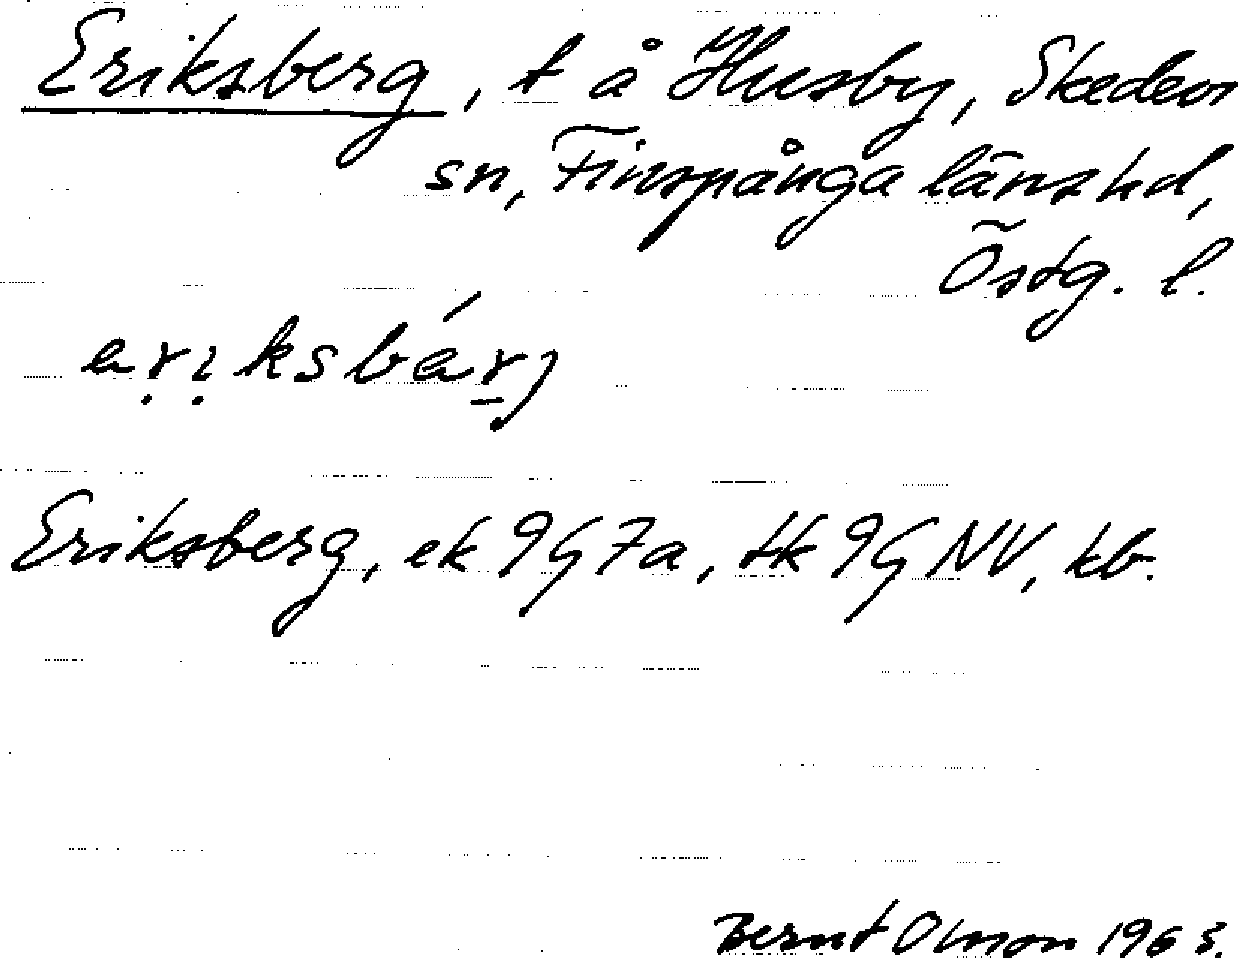 Eriksberg, t å Husby, Skedevi
sn, Finspånga länshd,
Östg. l.
ạṛịksbárj
Eriksberg, ek 9G7a, tk 9G NV, kb.
Bernt Olsson 1963.